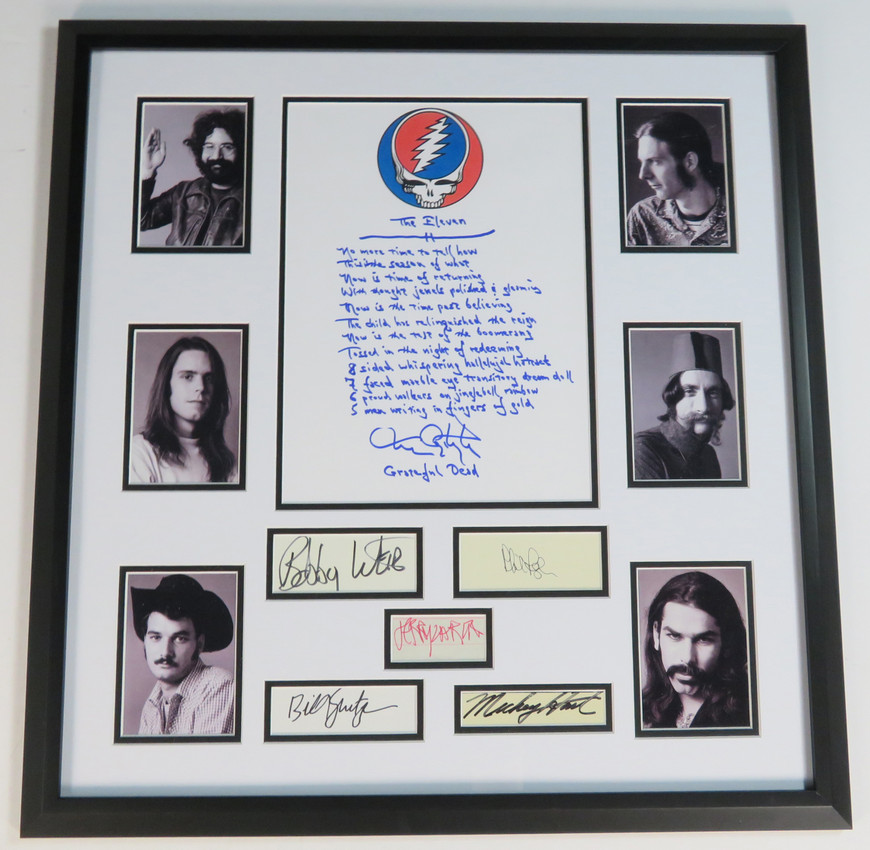 The Eleven
No more time to tell how
This is the season of what
Now is time of returning
With thought jewels polished & gleaming
Now is the time past believing
The child has relinquished the reign
Now is the test of the boomerang
Tossed in the night of redeeming
8 sided whispering hallelujah hatrack
7 faced marble eye transitory dream doll
6 proud walkers on jinglebell rainbow
5 men writing in fingers of gold
Grateful Dead
Bobby Weir
Mickey Hart